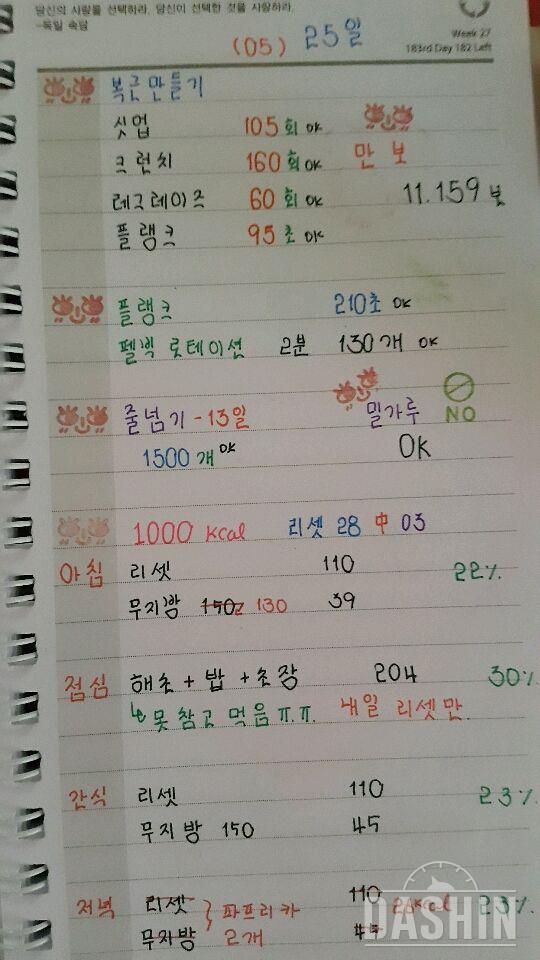 당신의 사랑을 선택하라. 당신이 선택한 것을 사랑하라.
-독일 속담
(05) 25일
Week 27
183rd Day 182 Left
복근만들기
싯업 105회 OK
크런치 160회 OK 만보
레그레이즈 60회 OK 11.159보
플랭크 95초 OK
플랭크 210초 OK
펠빅 로테이션 2분 130개 OK
줄넘기 - 13일 밀가루 NO
1500개 OK OK
1000 kcal 리셋 28 中 03
아침 리셋 110 22%
무지방 150z 130 39
점심 해초 + 밥 + 초장 204 30%
↳ 못 참고 먹음 ㅠ.ㅠ. 내일 리셋만.
간식 리셋 110 23%
무지방 150 45
저녁 리셋 } 파프리카 110 kcal 23%
무지방 2개 45
DASHIN